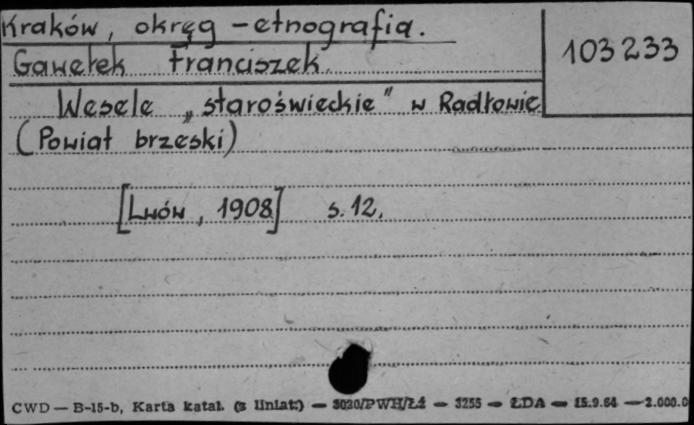 Kraków, okręg - etnografia.
103233
Gawełek Franciszek.
Wesele „staroświeckie" w Radłowie
(Powiat brzeski)
[Lwów, 1908] s. 12.
CWD — B-15-b, Karta katal. (z liniat.) — 3030/PWH/Ł1 — 3255 — ŁDA — 15.9.64 — 2.000.0